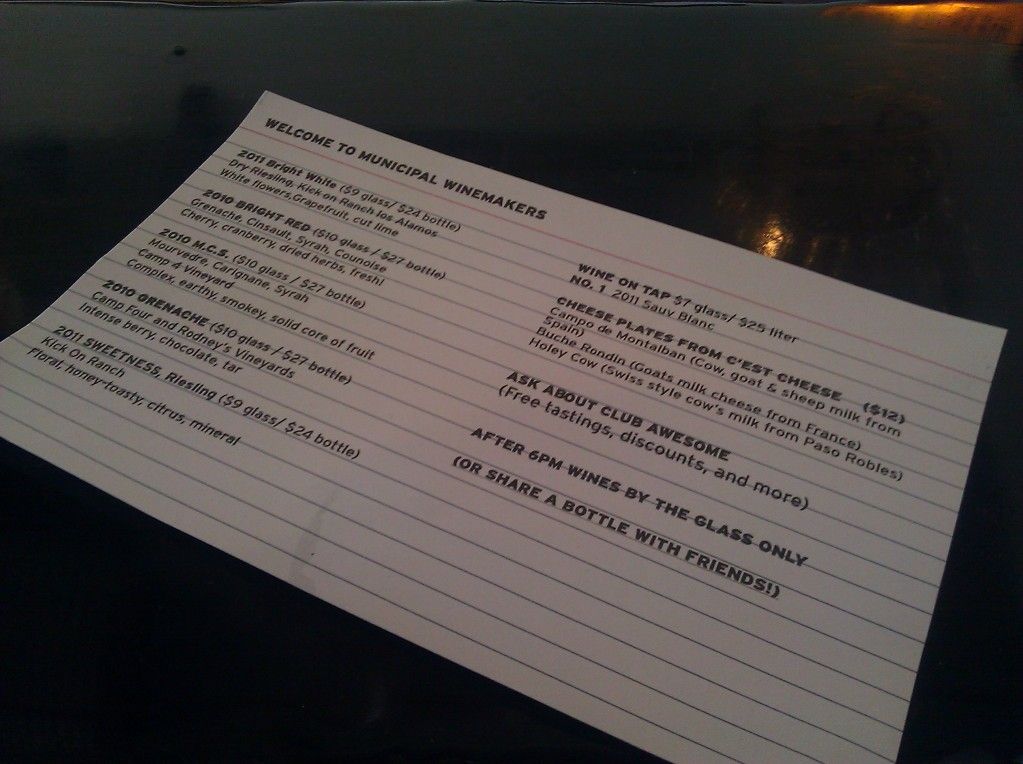 WELCOME TO MUNICIPAL WINEMAKERS
2011 Bright White ($9 glass/ $24 bottle)
Dry Riesling, Kick on Ranch los Alamos
White flowers,Grapefruit, cut lime
2010 BRIGHT RED ($10 glass / $27 bottle)
Grenache, Cinsault, Syrah, Counoise
Cherry, cranberry, dried herbs, fresh!
2010 M.C.S. ($10 glass / $27 bottle)
Mourvedre, Carignane, Syrah
Camp 4 Vineyard
Complex, earthy, smokey, solid core of fruit
2010 GRENACHE ($10 glass / $27 bottle)
Camp Four and Rodney's Vineyards
Intense berry, chocolate, tar
2011 SWEETNESS, Riesling ($9 glass/ $24 bottle)
Kick On Ranch
Floral, honey-toasty, citrus, mineral
WINE ON TAP $7 glass/ $25 liter
NO. 1 2011 Sauv Blanc
CHEESE PLATES FROM C'EST CHEESE ($12)
Campo de Montalban (Cow, goat & sheep milk from
Spain)
Buche Rondin (Goats milk cheese from France)
Holey Cow (Swiss style cow's milk from Paso Robles)
ASK ABOUT CLUB AWESOME
(Free tastings, discounts, and more)
AFTER 6PM WINES BY THE GLASS ONLY
(OR SHARE A BOTTLE WITH FRIENDS!)